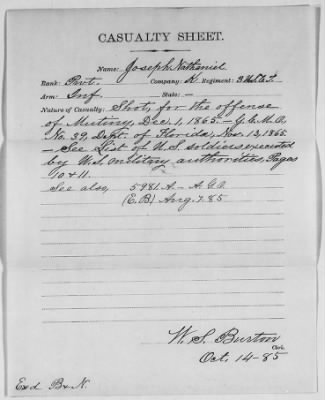 CASUALTY SHEET.
Name: Joseph Nathaniel
Rank: Pvt. Company: K Regiment: 3 U.S.C.T.
Arm: Inf State: —
Nature of Casualty: Shot, for the offense
of Mutiny, Dec. 1, 1865. — G.C.M.O.
No. 39, Dept. of Florida, Nov. 13, 1865.
— See List of U.S. soldiers executed
by U.S. military authorities, Pages
10 & 11.
See also, 5981. A — A.G.O.
(E.B) Aug. 7. 85
W. S. Burton
Clerk.
Oct. 14 - 85
Ex'd B. N.